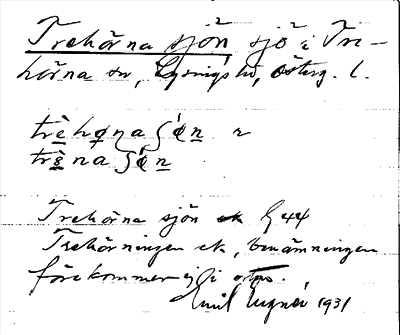 Trehörna sjön sjö i Tre-
hörna sn, Lysings hd, Österg. l.
trèhǫna ʃǿn r
trèna ʃǿn
Trehörna sjön ek G 44
Trehörningen ek, benämningen
förekommer ej i orten.
Emil 1931